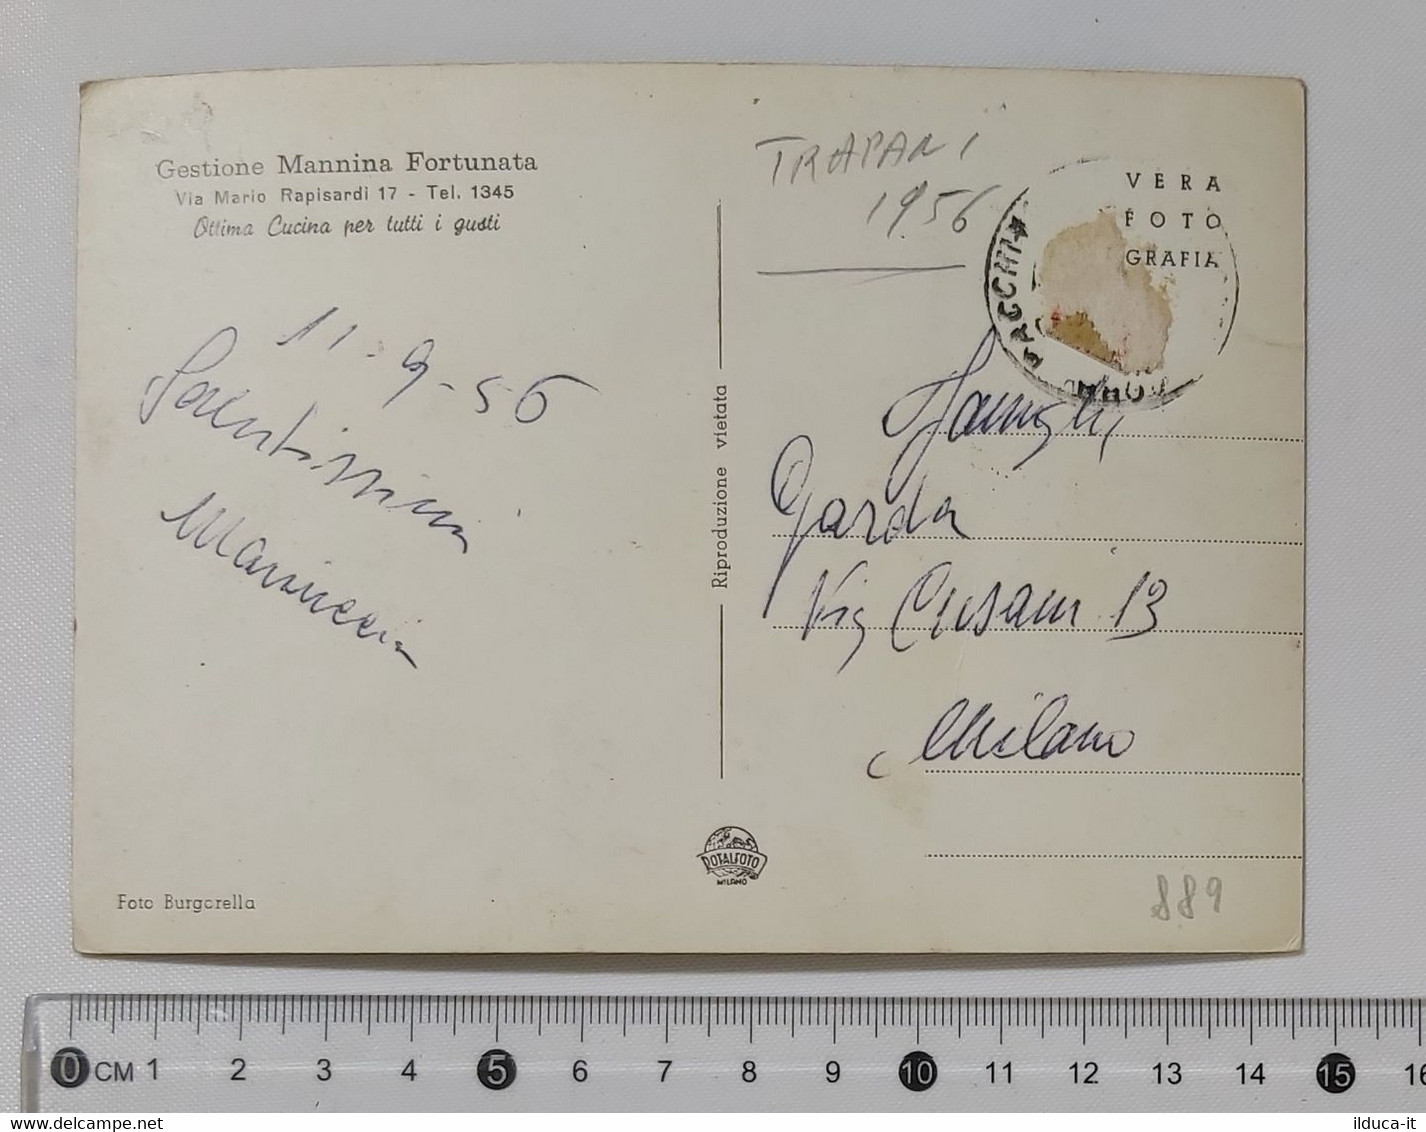 Gestione Mannina Fortunata
Via Mario Rapisardi 17 - Tel. 1345
Ottima Cucina per tutti i gusti
11-9-56
Mariuccia
Foto Burgarella
Riproduzione vietata
ROTALFOTO
MILANO
TRAPANI
1956
VERA
FOTO
GRAFIA
PACCHI
Famiglia
Garda
Via Cusani 13
Milano
889
0 CM 1 2 3 4 5 6 7 8 9 10 11 12 13 14 15 16
www.delcampe.net
ilduca-it